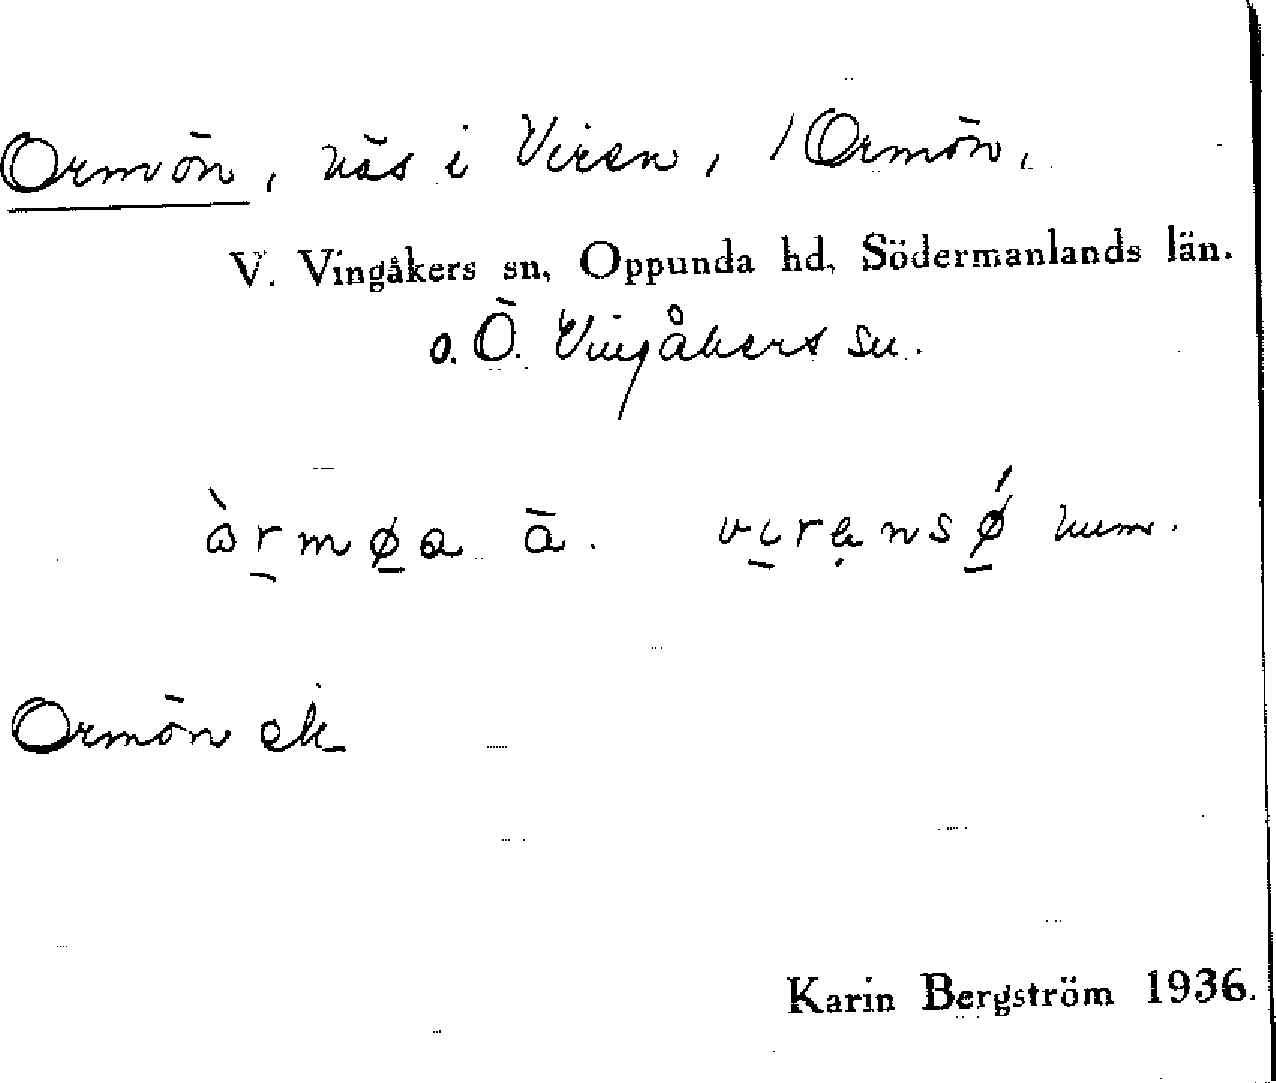 Ormön, näs i Viren, / Ormön,
V. Vingåkers sn, Oppunda hd, Södermanlands län.
o. Ö. Vingåkers sn.
àrmøa ā. virensǿ num.
Ormön ek
Karin Bergström 1936.